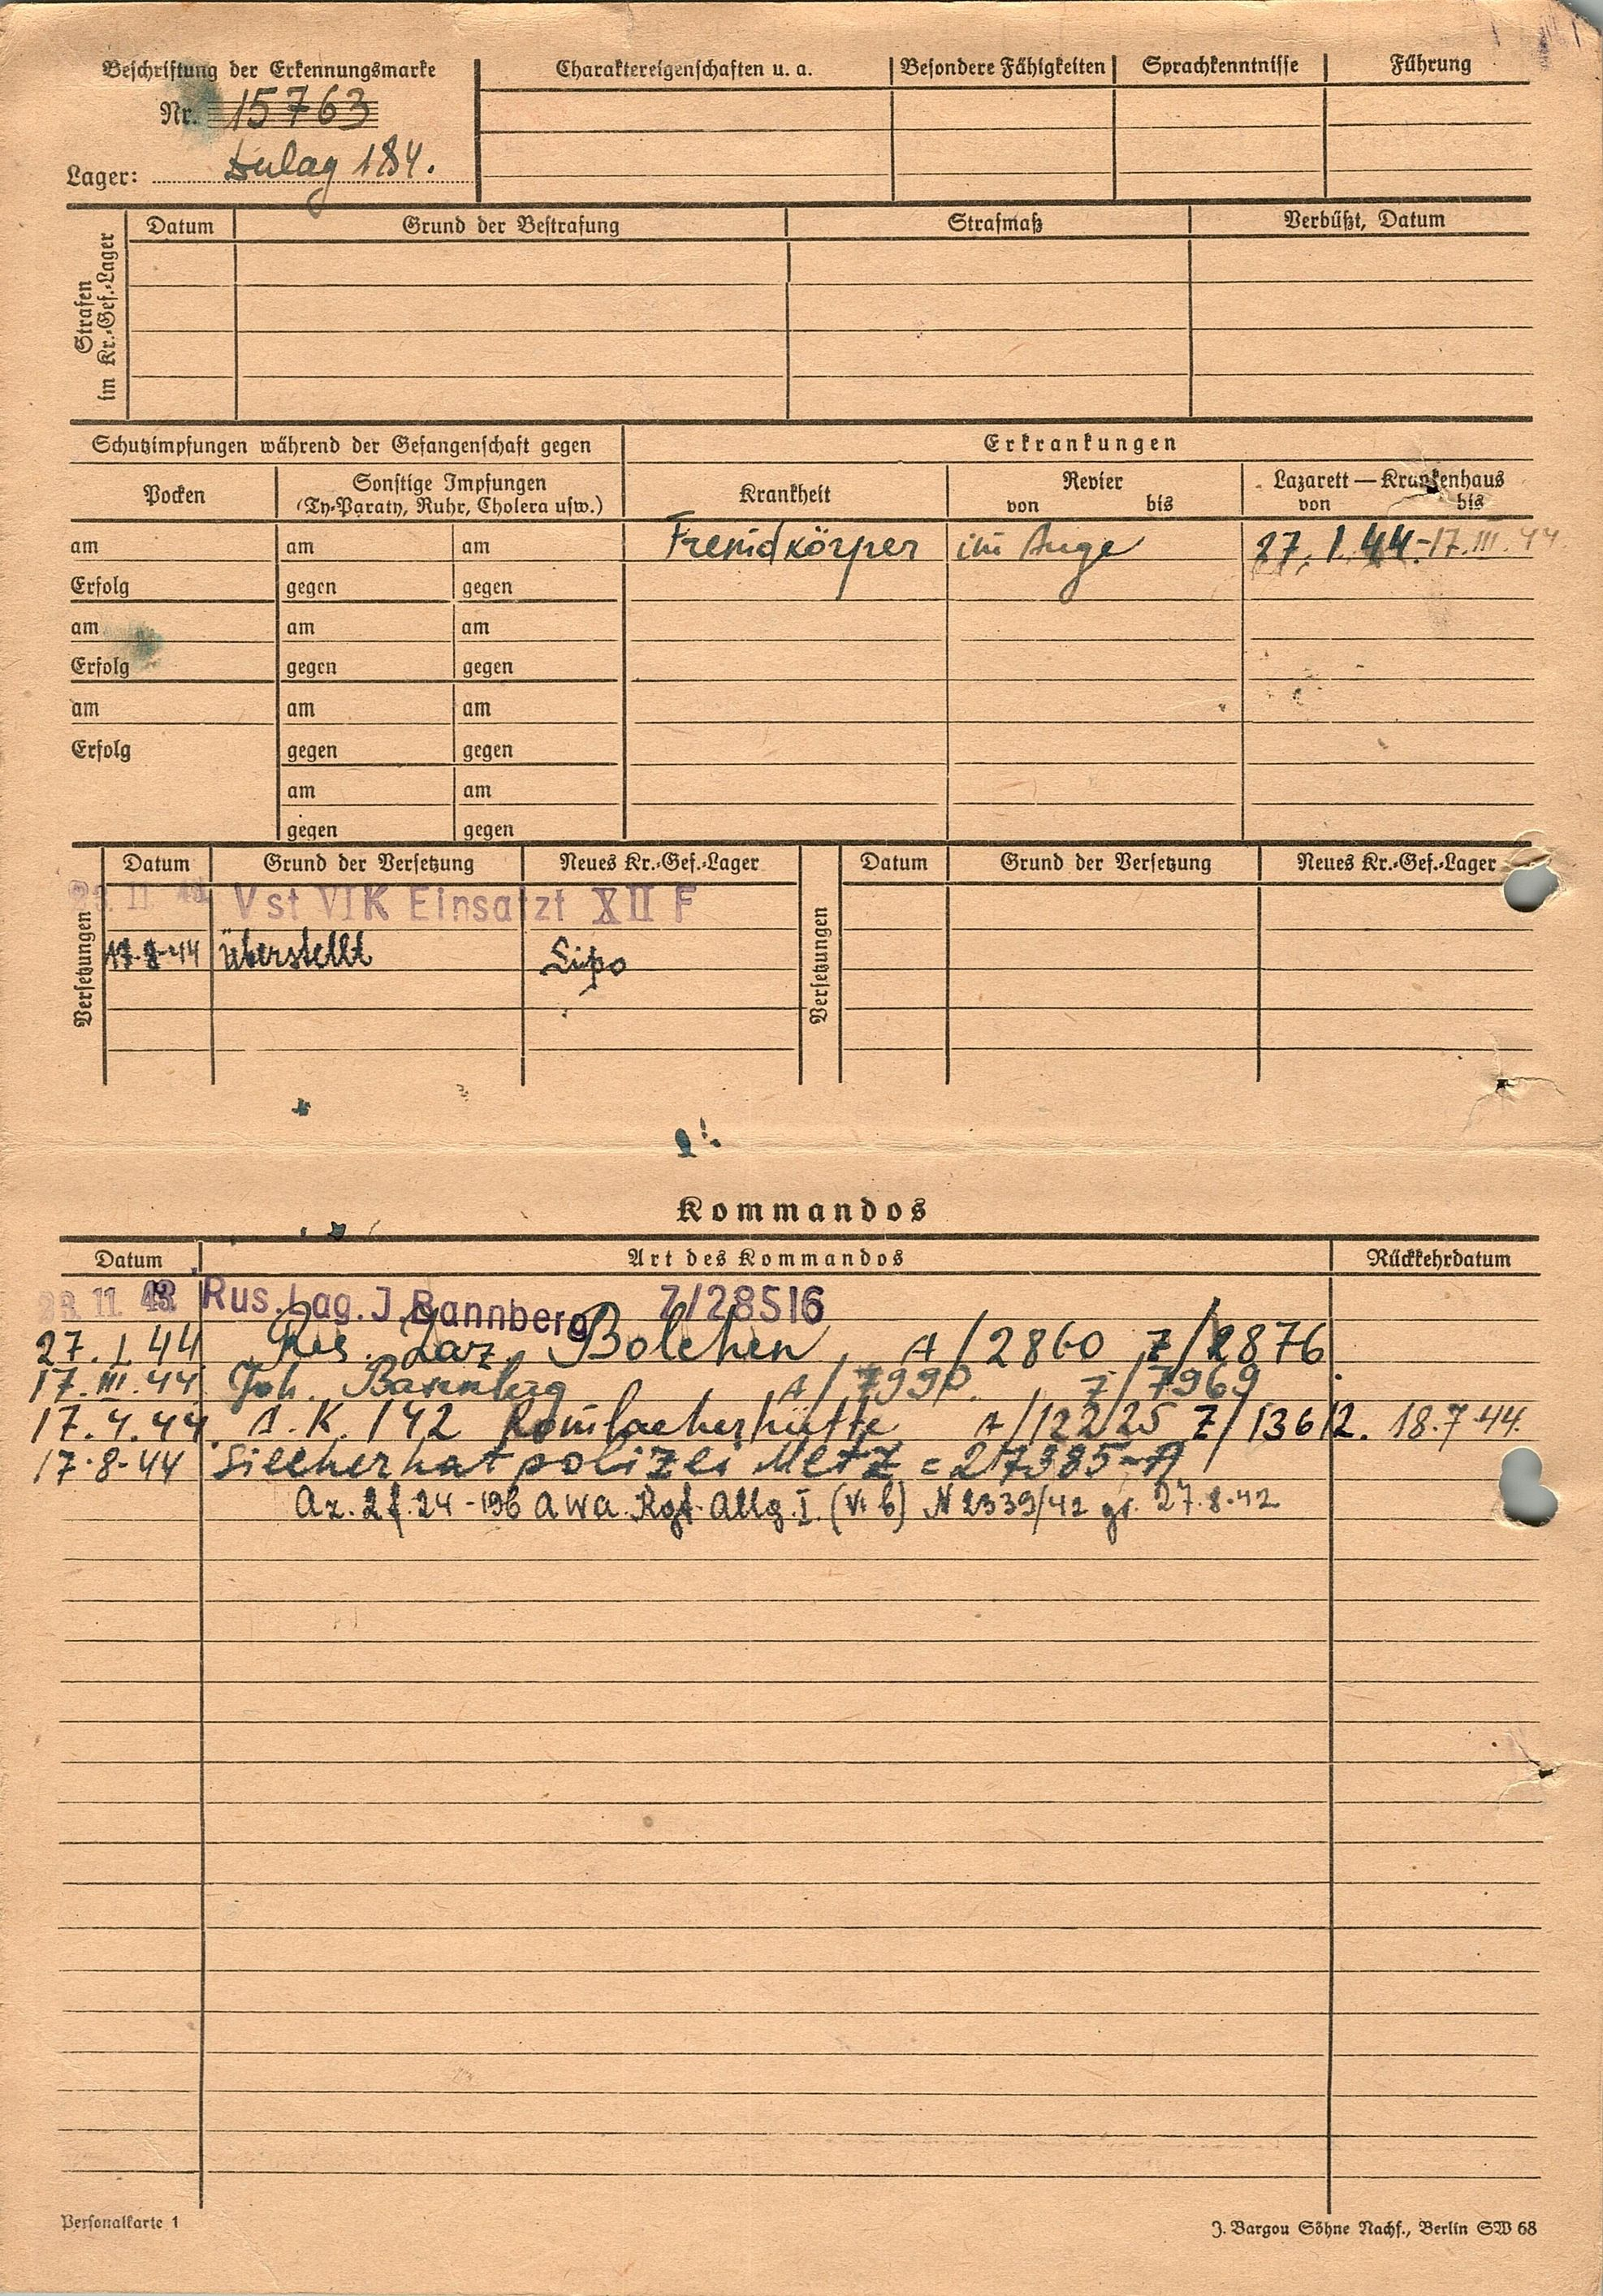 Beschriftung der Erkennungsmarke
Nr. 15763
Lager: Dulag 184.
Charaktereigenschaften u. a. Besondere Fähigkeiten Sprachkenntnisse Führung
Strafen im Kr.-Gef.-Lager
Datum Grund der Bestrafung Strafmaß Verbüßt, Datum
Schutzimpfungen während der Gefangenschaft gegen Erkrankungen
Pocken Sonstige Impfungen (Ty-Paraty, Ruhr, Cholera usw.) Krankheit Revier von bis Lazarett — Krankenhaus von bis
am am am Fremdkörper im Auge 27. 1. 44-17.III.44
Erfolg gegen gegen
am am am
Erfolg gegen gegen
am am am
Erfolg gegen gegen
am am
gegen gegen
Versetzungen
Datum Grund der Versetzung Neues Kr.-Gef.-Lager
Vst VIK Einsatzt XII F
17-8-44 überstellt Sipo
Versetzungen
Datum Grund der Versetzung Neues Kr.-Gef.-Lager
Kommandos
Datum Art des Kommandos Rückkehrdatum
23. 11. 43. Rus.Lag.J.Bannberg Z/28516
27. 1. 44 Res. Laz. Bolchen A/2860 Z/2876
17.III.44 Joh. Bannberg A/7990 Z/7969
17.4.44. A.K. 142 Rombacherhütte A/12225 Z/13612. 18.7.44.
17-8-44 Siecherhatpolizei Metz = 27385-A
Az. 2f.24-19b AWA. Kgf. Allg. I. (VI b) N 2339/42 27.8.42
Personalkarte 1
J. Bargou Söhne Nachf., Berlin SW 68